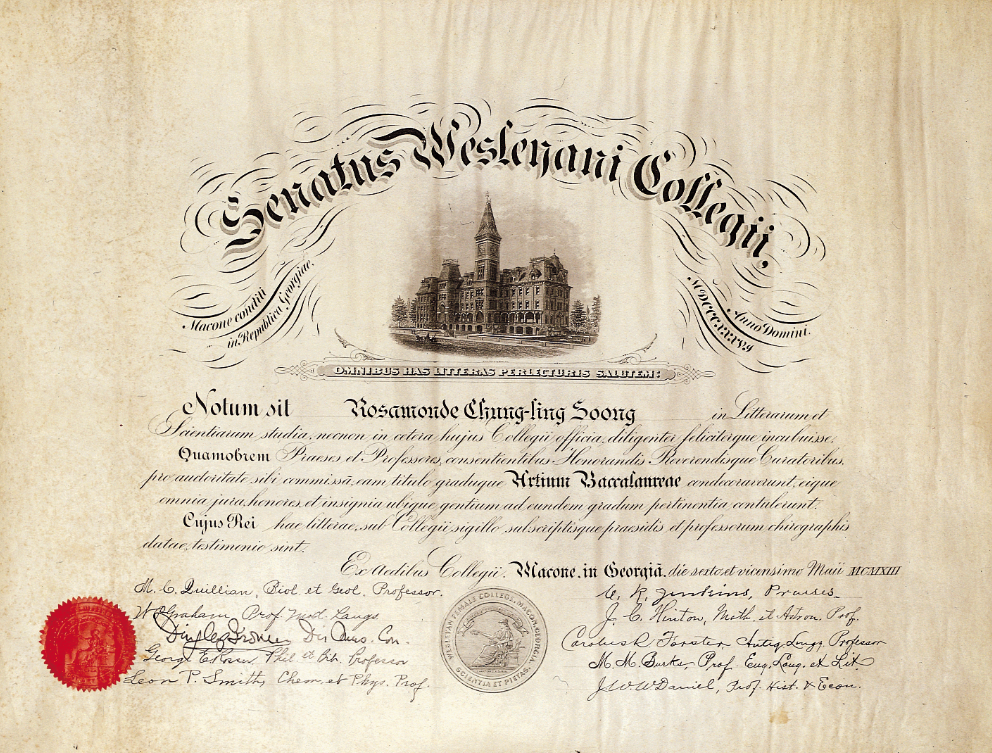 Senatus Wesleyani Collegii,
Macone conditi
in Republica Georgiae.
Anno Domini.
MDCCCXXXVI
OMNIBUS HAS LITTERAS PERLECTURIS SALUTEM:
Notum sit Rosamonde Chung-ling Soong in Litterarum et
Scientiarum studia, necnon in cetera hujus Collegii officia, diligenter feliciterque incubuisse.
Quamobrem Praeses et Professores, consentientibus Honorandis Reverendisque Curatoribus,
pro auctoritate sibi commissâ, eam titulo graduque Artium Baccalaureae condecoraverunt, eique
omnia jura, honores et insignia ubique gentium ad eundem gradum pertinentia contulerunt.
Cujus Rei hae litterae, sub Collegii sigillo subscriptisque praesidis et professorum chirographis
datae, testimonio sint.
Ex Aedibus Collegii. Macone. in Georgiâ. die sexto et vicensimo Maii MCMXIII
M. C. Quillian, Biol et Geol, Professor.
Graham, Prof Mod. Langs.
Mus. Con.
George E. Rosser Phil et Bib. Professor
Leon P. Smith, Chem, et Phys. Prof.
WESLEYAN FEMALE COLLEGE, MACON, GEORGIA.
SCIENTIA ET PIETAS
C. R. Jenkins, Praeses.
J. C. Hinton, Math et Astron. Prof.
Forster Antiq Lang, Professor
M. M. Burks, Prof. Eng. Lang. et Lit
J. W. W. Daniel, Prof. Hist. & Econ.